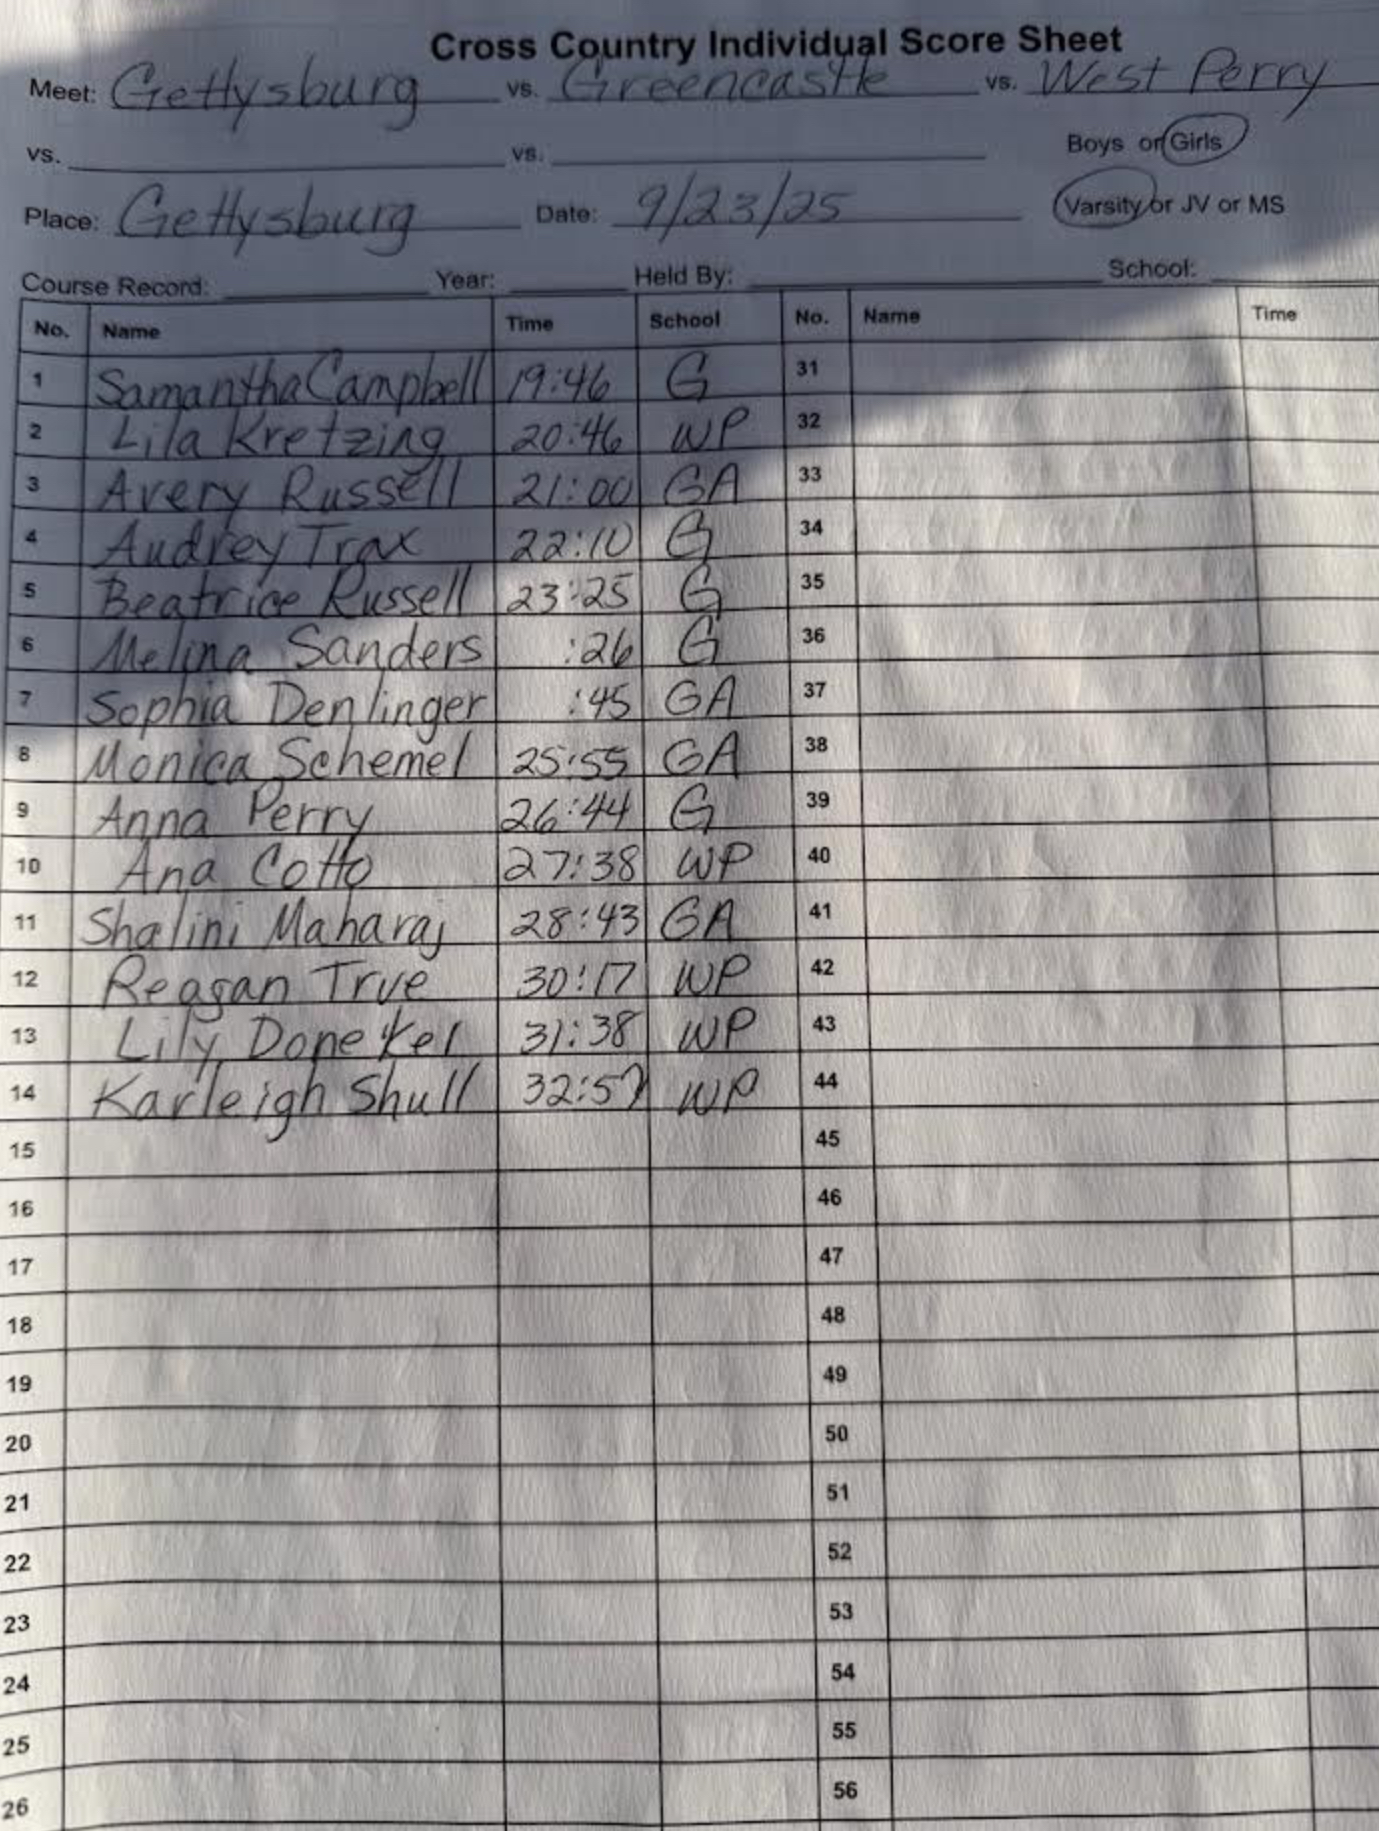 Cross Country Individual Score Sheet
Meet: Gettysburg vs. Greencastle vs. West Perry
vs. vs. Boys or Girls
Place: Gettysburg Date: 9/23/25 Varsity or JV or MS
Course Record: Year: Held By: School:
No. Name Time School No. Name Time
1 Samantha Campbell 19:46 G 31
2 Lila Kretzing 20:46 WP 32
3 Avery Russell 21:00 GA 33
4 Audrey Trax 22:10 G 34
5 Beatrice Russell 23:25 G 35
6 Melina Sanders :26 G 36
7 Sophia Denlinger :45 GA 37
8 Monica Schemel 25:55 GA 38
9 Anna Perry 26:44 G 39
10 Ana Cotto 27:38 WP 40
11 Shalini Maharaj 28:43 GA 41
12 Reagan True 30:17 WP 42
13 Lily Doneker 31:38 WP 43
14 Karleigh Shull 32:57 WP 44
15 45
16 46
17 47
18 48
19 49
20 50
21 51
22 52
23 53
24 54
25 55
26 56